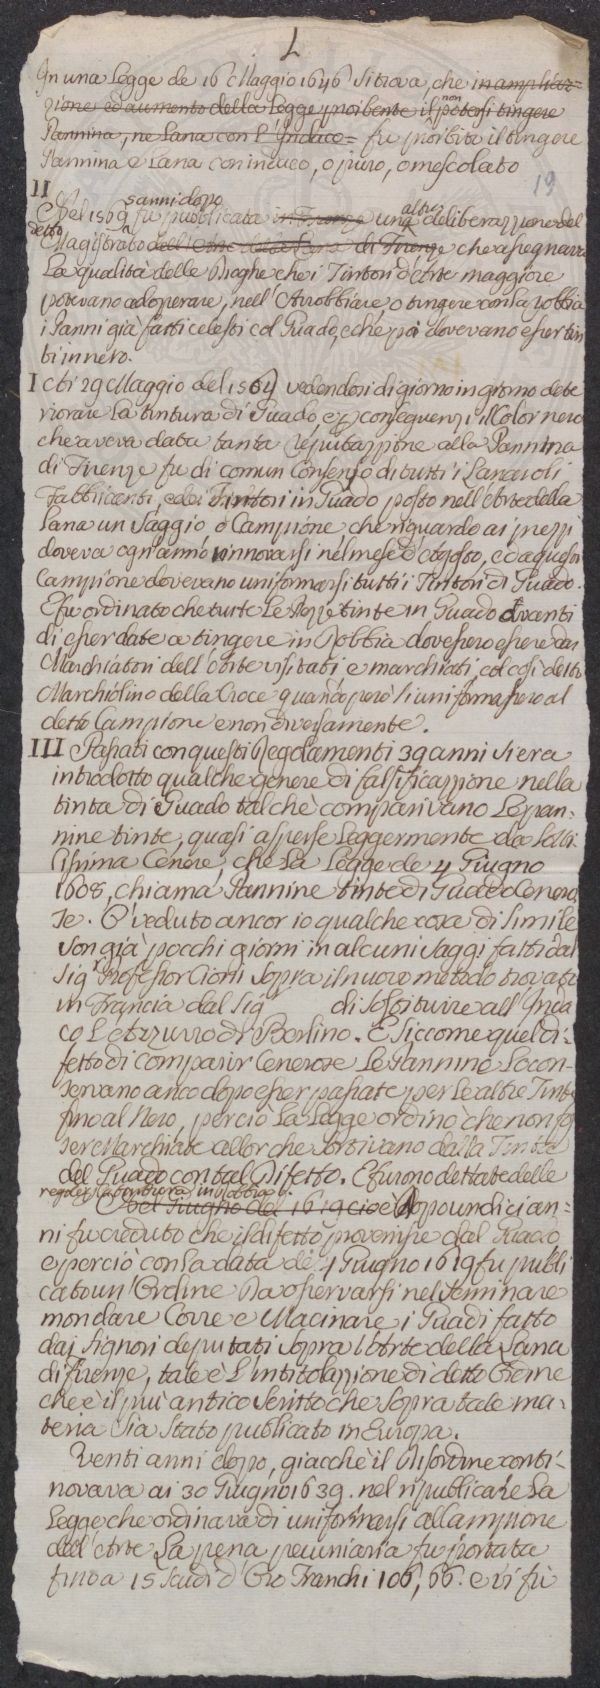 L
In una Legge de 16 Maggio 1646 si trova, che in amplia=
zione ed aumento della Legge proibente il non potersi tingere
Pannina, ne Lana con l'Indaco= fu proibito il tingere
Pannina e Lana con indaco, o puro, o mescolato
19
II
5 anni dopo
Del 1569 fu pubblicata in Firenze una altra deliberazione del
detto Magistrato dell'Arte della Lana di Firenze che assegnava
La qualità delle Draghe che i Tintori d'Arte maggiore
potevano adoperare, nell'Arrobbiare o tingere con la robbia
i Panni già fatti celesti col Guado, e che poi dovevano esser tin
ti in nero.
I Ai 29 Maggio del 1564 vedendosi di giorno in giorno dete
riorare la tintura di Guado e p conseguenza il Color nero
che aveva data tanta reputazzione alla Pannina
di Firenze fu di comun Consenso di tutti i Lanaioli
Fabbricanti, e dei Tintori in Guado posto nell'Arte della
Lana un Saggio o Campione che riguardo ai prezzi
doveva ogn'anno rinnovarsi nel mese d'Agosto, ed a questo
Campione dovevano uniformarsi tutti i Tintori di Guado.
E fu ordinato che tutte Le Pezze tinte in Guado avanti
di esser date a tingere in Robbia dovessero essere dai
Marchiatori dell'Arte visitati e marchiati col così detto
Marchiolino della Croce quando però si uniformassero al
detto Campione e non diversamente.
III Passati con questi Regolamenti 39 anni si era
introdotto qualche genere di falsificazzione nella
tinta di Guado talchè comparivano Le pan=
nine tinte, quasi asperse Leggermente da sotti
lissima Cenere, che La Legge de 4 Giugno
1608, chiama Pannine tinte di Guado Cenero
se. E' veduto ancor io qualche cosa di simile
son già pocchi giorni in alcuni saggi fatti dal
Sigr Professor Cioni sopra il nuovo metodo trovato
in Francia dal Sig di sostituire all'Inda
co L'Azzurro di Berlino. E siccome quel di=
fetto di comparir Cenerose Le Pannine Lo con=
servano anco dopo esser passate per Le altre Tinte
fino al Nero, perciò La Legge ordinò che non fos
sero Marchiate allor che sortivano dalla Tinta
del Guado con tal Difetto. E furono dettate delle
regole p la tintura in robbia.
Del Giugno del 1619 cioè Dopo undici an=
ni fu creduto che il difetto provenisse dal Guado
e perciò con La data de 1 Giugno 1619 fu pubbli
cato un'Ordine Da osservarsi nel Seminare
mondare Corre e Macinare i Guadi fatto
dai Signori deputati sopra l'Arte della Lana
di firenze, tale è L'intitolazzione di detto Ordine
che è il più antico scritto che sopra tale ma=
teria sia stato pubblicato in Europa.
Venti anni doppo, giacchè il disordine conti=
novava ai 30 Giugno 1639. nel ripubblicare La
Legge che ordinava di uniformarsi al Campione
dell'Arte La pena pecuniaria fu portata
fino a 15 Scudi d'Oro Franchi 106,66. e vi fù